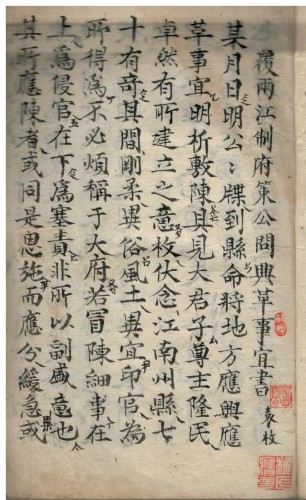 覆兩江制府策公問興草事宜書 袁枚
某月日明公〻牒到縣命將地方應興應
草事宜明析敷陳具見大君子尊主隆民
卓然有所建立之意枚伏念江南州縣七
十有奇其間剛柔異俗風土異宜印官為
所得為不必煩稱于大府若冒陳細事在
上為侵官在下為塞責非所以副盛意也
其所應陳者或同是恩施而應分緩急或